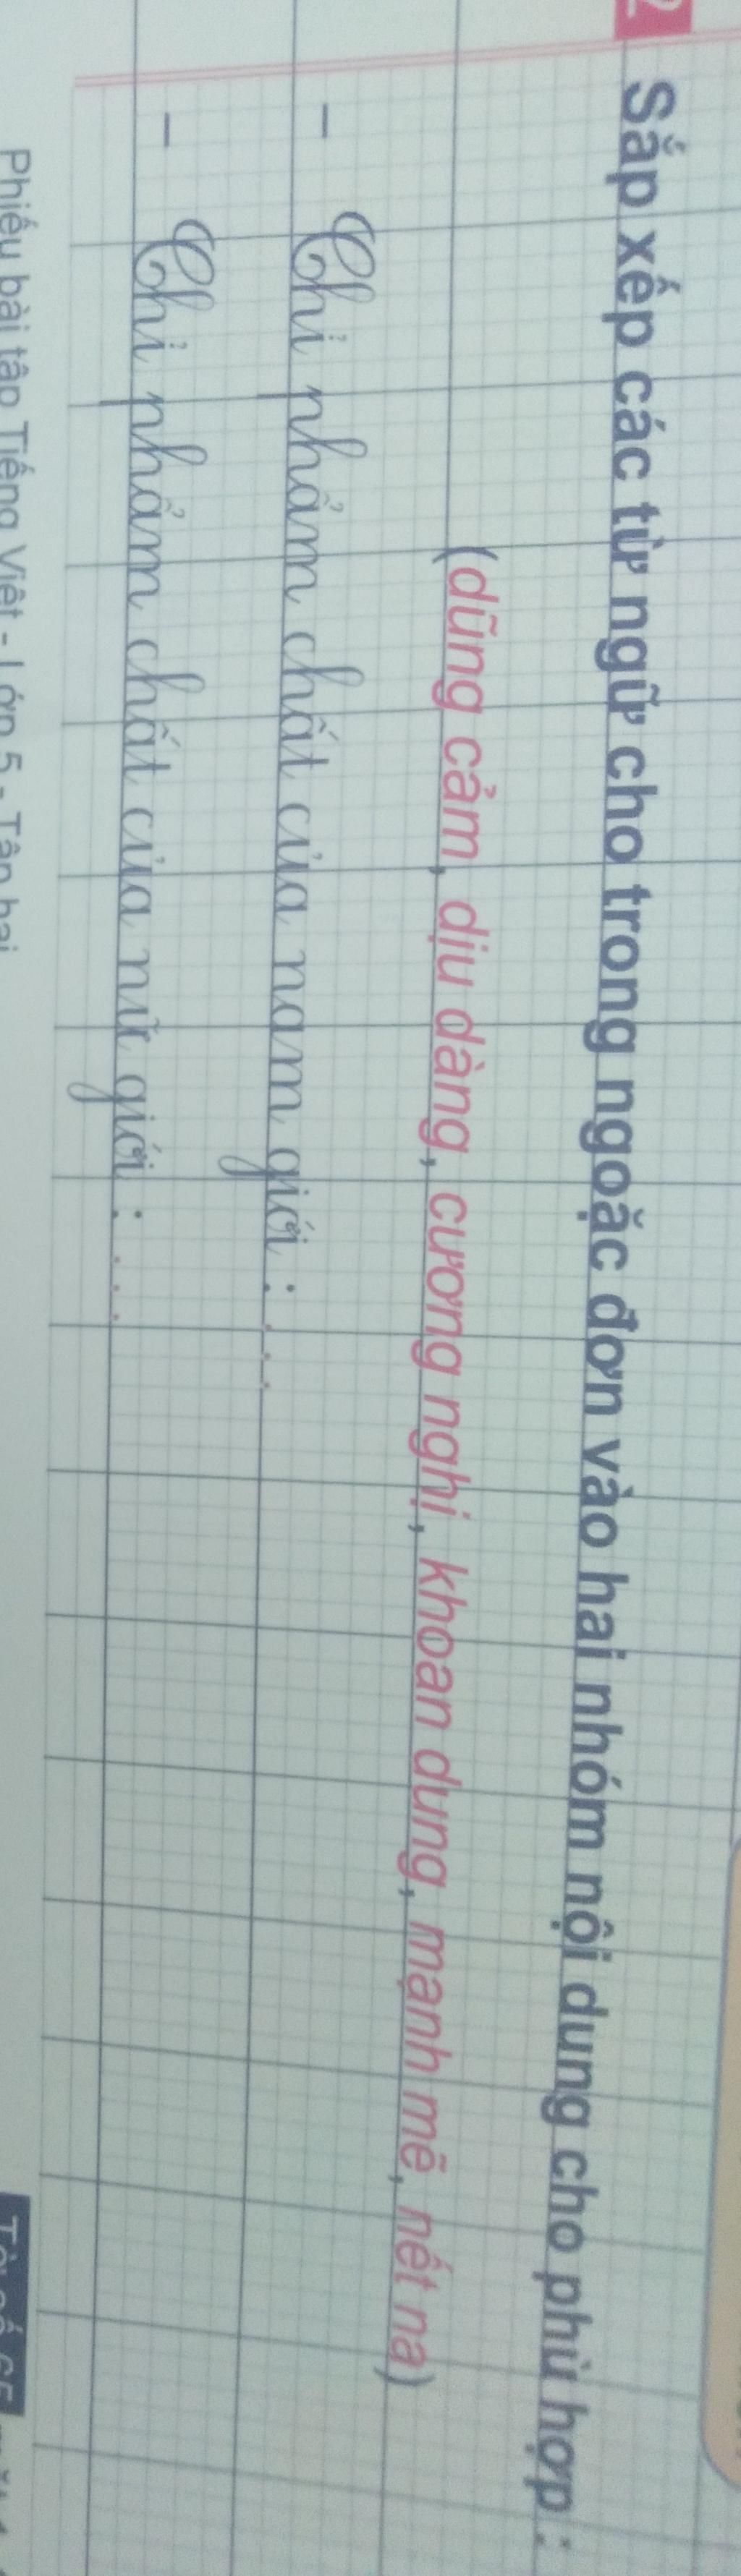 2 Sắp xếp các từ ngữ cho trong ngoặc đơn vào hai nhóm nội dung cho phù hợp :
(dũng cảm, dịu dàng, cương nghị, khoan dung, mạnh mẽ, nết na)
- Chỉ phẩm chất của nam giới : ...
- Chỉ phẩm chất của nữ giới : ...
Phiếu bài tập Tiếng Việt - Lớp 5 - Tập hai
Tờ số 65